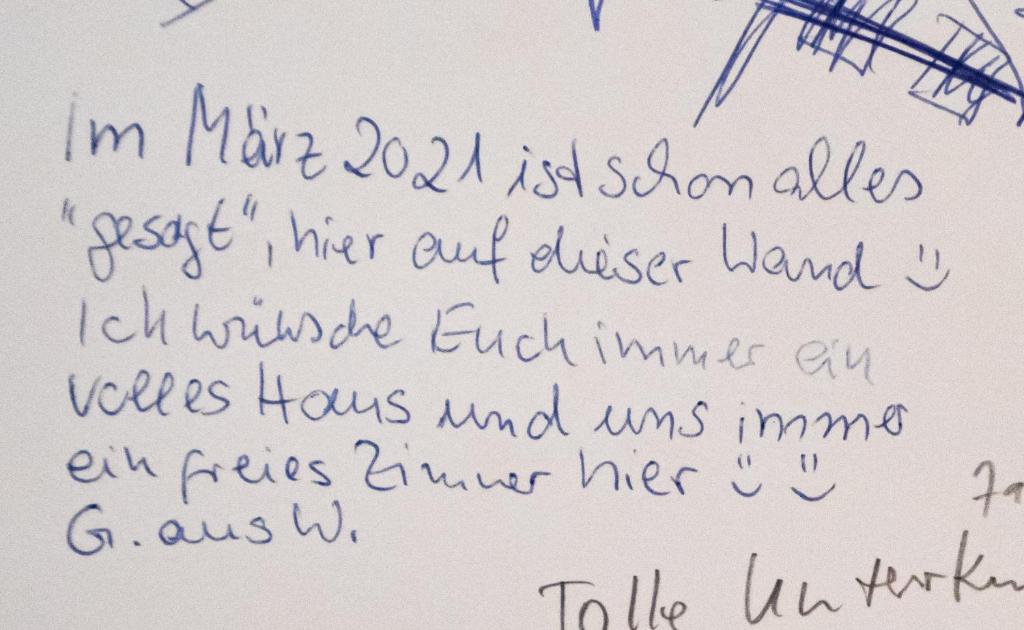 Im März 2021 ist schon alles
"gesagt", hier auf dieser Wand :)
Ich wünsche Euch immer ein
volles Haus und uns immer
ein freies Zimmer hier :) :)
G. aus W.
Tolle